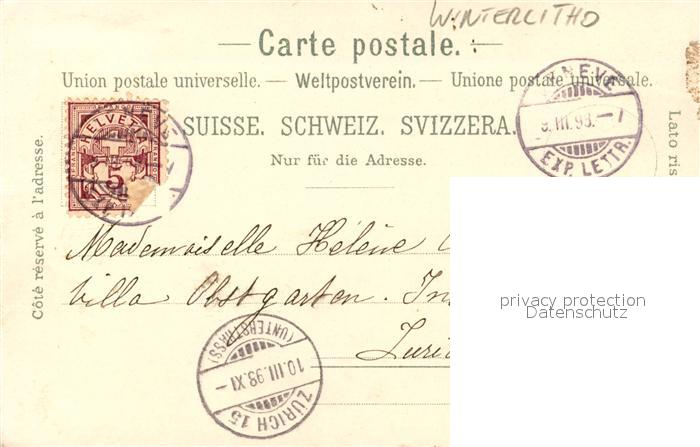 WINTERLITHO
— Carte postale. —
Union postale universelle. — Weltpostverein. — Unione postale universale.
SUISSE. SCHWEIZ. SVIZZERA.
Nur für die Adresse.
Côté réservé à l'adresse.
Lato ris
HELVETIA
5
GENÈVE
9.III.98.—7
EXP. LETTR.
Mademoiselle Hélène
Villa Obstgarten.
Zuric
privacy protection
Datenschutz
(UNTERSTRASS)
10.III.98.XI—
ZÜRICH 15